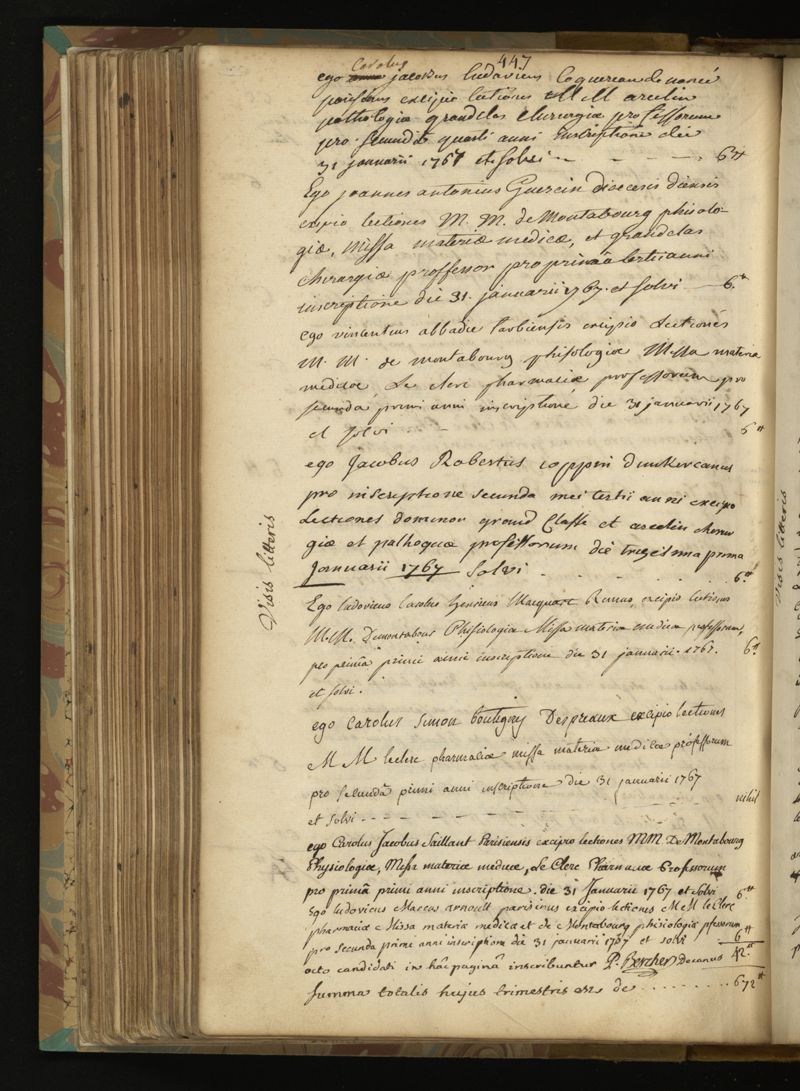 447
Carolus
ego jacobus ludovicus Coquereau de
parisinus excipio lectiones M M arcelin
pathologiæ grandclas chirurgiæ professorum
pro secunda quarti anni inscriptione die
31 januarii 1767 et solvi - - - 6 ₶
Ego joannes antonius Guercin diœcesis diensis
excipio lectiones M. M. de Montabourg phisolo-
giæ, Missa materiæ medicæ, et grandclas
chirurgiæ proffessor pro primâ tertii anni
inscriptione die 31. januarii 1767. et solvi - 6.₶
ego vincentius abbadie tarbiensis excipio Lectiones
M. M. de montabourg phisologiæ Missa materiæ
medicæ Le clerc pharmaciæ professorum pro
secunda primi anni inscriptione die 31 januarii 1767
et solvi - 6 ₶
ego Jacobus Robertus coppin dunkercanus
pro inscriptione secunda mei tertii anni excipio
Lectiones dominor grand Classe et arcelin chirur
giæ et pathogiæ professorum die trigesima prima
Januarii 1767 Solvi . . . . 6 ₶
Visis litteris
Ego ludovicus Carolus henricus Macquart Remus, excipio lectiones
M.M. Demontabour Phisiologiæ Missa materiæ medicæ professorum,
pro primâ primi anni inscriptione die 31 januarii. 1767. 6 ₶
et solvi.
ego Carolus Simon boutigny Despreaux excipio lectiones
M M leclerc pharmaciæ missa materiæ medicæ professorum
pro secundâ primi anni inscriptione die 31 januarii 1767
et solvi - - - - - - nihil
ego Carolus Jacobus Saillant Parisiensis excipio lectiones MM. De Montabourg
Physiologiæ, Missa materiæ medicæ, De Clerc Pharmaciæ Professorum
pro primâ primi anni inscriptione. die 31 Januarii 1767 et solvi 6 ₶
Ego ludovicus Marcus arnoult parisinus excipio lectiones M M le Clerc
pharmaciæ Missa materiæ medicæ et de Montabourg phisiologiæ pfessorum
pro secunda primi anni inscriptione die 31 januarii 1767 et solvi 6 ₶
octo candidati in hâc paginâ inscribuntur P. Bercher Decanus 42 ₶
Summa totalis hujus trimestris est de . . . . . . . . . 672 ₶
Visis litteris